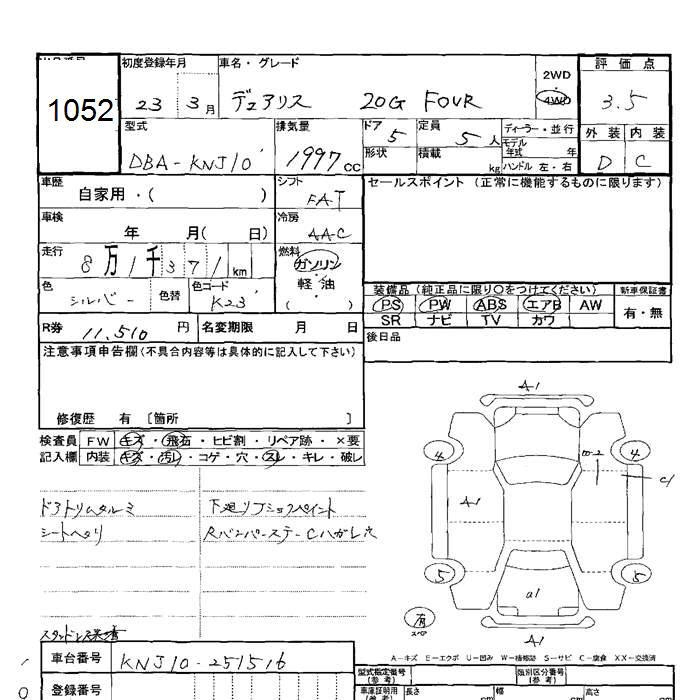 1052
初度登録年月 車名・グレード 評価点
23 3月 デュアリス 20G FOUR 2WD 4WD 3.5
型式 排気量 ドア 定員 ディーラー・並行 外装 内装
DBA-KNJ10 1997cc 5 5人 モデル年式 年 D C
形状 積載 kg ハンドル 左・右
車歴 自家用・( ) シフト FAT セールスポイント (正常に機能するものに限ります)
車検 年 月( 日) 冷房 AAC
走行 8万1千371km 燃料 ガソリン・軽・油 ( )
色 シルバー 色替 色コード K23
装備品(純正品に限り○をつけてください) 新車保証書
PS PW ABS エアB AW 有・無
SR ナビ TV カワ
R券 11,510円 名変期限 月 日 後日品
注意事項申告欄(不具合内容等は具体的に記入して下さい)
修復歴 有 [箇所 ]
検査員 FW キズ・飛石・ヒビ割・リペア跡・×要
記入欄 内装 キズ・汚レ・コゲ・穴・スレ・キレ・破レ
ドアトリムタルミ 下廻リブショックペイント
シートヘタリ RバンパーステーCハガレ穴
A1
4 4
A1 C1
5 5
a1
有 スペア
A1
A-キズ E-エクボ U-凹み W-補修跡 S-サビ C-腐食 XX-交換済
車台番号 KNJ10-251516 型式指定番号(参考) 類別区分番号(参考)
登録番号 長さ cm 幅 cm 高さ